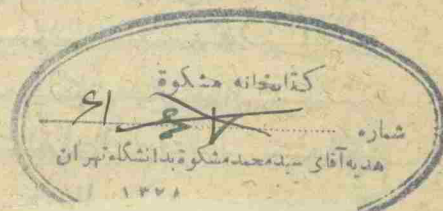 كتابخانه مشكوة
شماره ۶۱
هديه آقاى سيد محمد مشكوة بدانشگاه تهران
۱۳۲۸